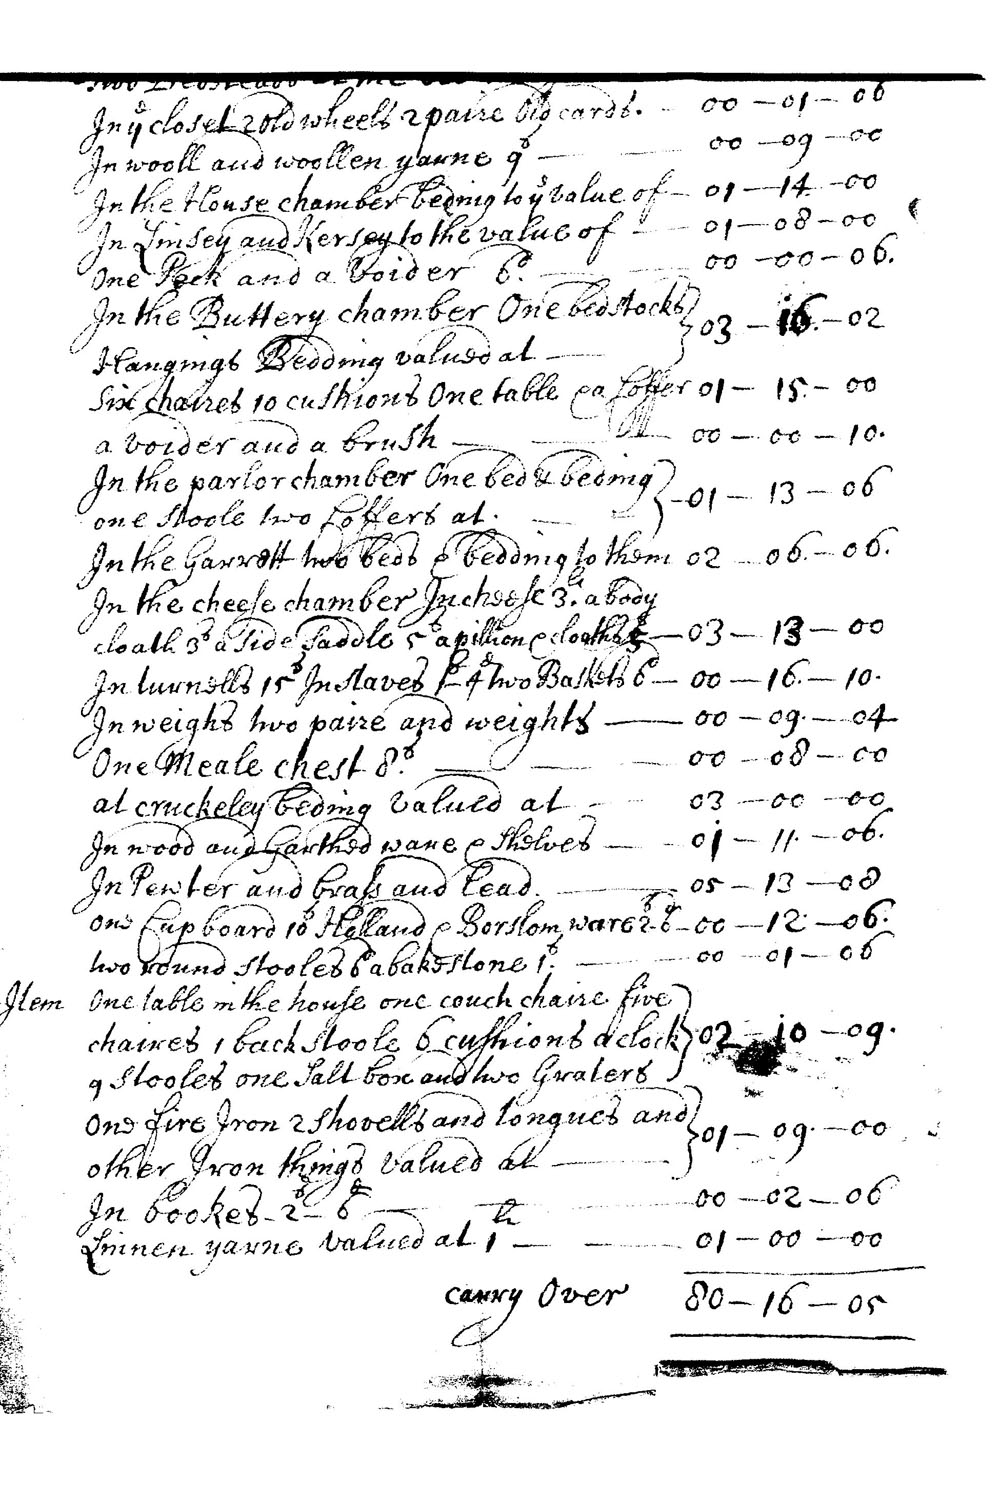 two Bedsteads at the
In yͤ closet 2 old wheels 2 paire Old cards. — 00 — 01 — 06
In wooll and woollen yarne 9ˢ — 00 — 09 — 00
In the House chamber beding to yͤ value of — 01 — 14 — 00
In Linsey and Kersey to the value of — 01 — 08 — 00
One Peck and a Voider 6ᵈ. — 00 — 00 — 06.
In the Buttery chamber One bedstocks
Hangings Bedding valued at — } 03 — 16. — 02
Six chaires 10 cushions One table & a Coffer 01 — 15. — 00
a voider and a brush — 00 — 00 — 10.
In the parlor chamber One bed & beding
one stoole two Coffers at. — } 01 — 13 — 06
In the Garrott two beds & bedding to them 02 — 06. — 06.
In the cheese chamber In cheese 3.ˡⁱ a body
cloath 3ˢ a Side Saddle 5ˢ a pillion & cloath 5ˢ — 03 — 13 — 00
In turnells 15ˢ In staves 1ˢ – 4ᵈ two Baskets 6ᵈ — 00 — 16. — 10.
In weighs two paire and weights — 00 — 09. — 04
One Meale chest 8.ˢ — 00 — 08 — 00
at cruckeley beding Valued at — 03 — 00 — 00
In wood and Earthed ware & Shelves — 01 — 11. — 06.
In Pewter and brass and Lead. — 05 — 13 — 08
one Cupboard 10ˢ Holland & Borslom ware 2ˢ–6ᵈ — 00 — 12 — 06.
two round stooles 6ᵈ a bakestone 1ˢ. — 00 — 01 — 06
Item One table in the house one couch chaire five
chaires 1 back stoole 6 cushions a clock } 02 — 10 — 09.
9 Stooles one Salt box and two Graters
One fire Iron 2 shovells and tongues and
other Iron things valued at — } 01 — 09. — 00
In bookes – 2ˢ – 6ᵈ — 00 — 02 — 06
Linnen yarne valued at 1ˡⁱ — 01 — 00 — 00
carry Over 80 — 16 — 05